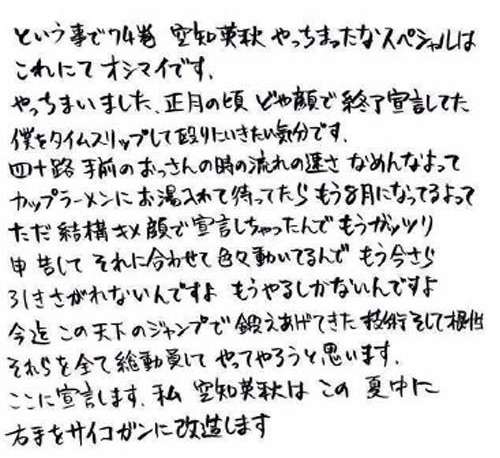 という事で74巻 空知英秋 やっちまったなスペシャルは
これにてオシマイです。
やっちまいました、正月の頃 どや顔で終了宣言してた
僕をタイムスリップして殴りにいきたい気分です。
四十路手前のおっさんの時の流れの速さ なめんなよって
カップラーメンにお湯入れて待ってたら もう8月になってるよって
ただ 結構キメ顔で宣言しちゃったんで もうガッツリ
申告して それに合わせて色々動いてるんで もう今さら
引きさがれないんですよ もうやるしかないんですよ
今迄 この天下のジャンプで鍛えあげてきた 技術そして根性
それらを全て総動員して やってやろうと思います。
ここに宣言します、私 空知英秋は この 夏中に
右手をサイコガンに改造します